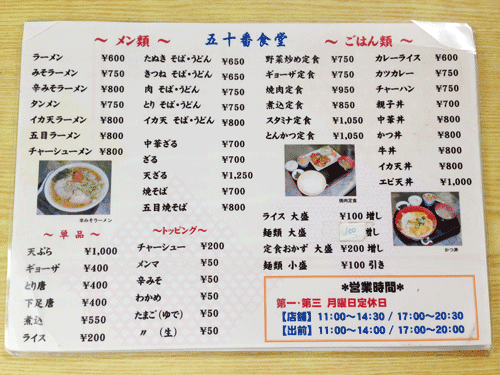 ～ メン類 ～
五十番食堂
～ ごはん類 ～
ラーメン ¥600
みそラーメン ¥750
辛みそラーメン ¥750
タンメン ¥750
イカ天ラーメン ¥800
五目ラーメン ¥800
チャーシューメン ¥800
辛みそラーメン
たぬき そば・うどん ¥650
きつね そば・うどん ¥650
肉 そば・うどん ¥750
とり そば・うどん ¥750
イカ天 そば・うどん ¥800
中華ざる ¥700
ざる ¥700
天ざる ¥1,250
焼そば ¥700
五目焼そば ¥800
野菜炒め定食 ¥750
ギョーザ定食 ¥750
焼肉定食 ¥950
煮込定食 ¥850
スタミナ定食 ¥1,050
とんかつ定食 ¥1,050
焼肉定食
カレーライス ¥600
カツカレー ¥750
チャーハン ¥750
親子丼 ¥700
中華丼 ¥800
かつ丼 ¥800
牛丼 ¥800
イカ天丼 ¥800
エビ天丼 ¥1,000
かつ丼
～ 単品 ～
天ぷら ¥1,000
ギョーザ ¥400
とり唐 ¥400
下足唐 ¥400
煮込 ¥550
ライス ¥200
～トッピング～
チャーシュー ¥200
メンマ ¥50
辛みそ ¥50
わかめ ¥50
たまご(ゆで) ¥50
〃 (生) ¥50
ライス 大盛 ¥100 増し
麺類 大盛 100 増し
定食おかず 大盛 ¥200 増し
麺類 小盛 ¥100 引き
*営業時間*
第一・第三 月曜日定休日
【店舗】 11:00～14:30 / 17:00～20:30
【出前】 11:00～14:00 / 17:00～20:00